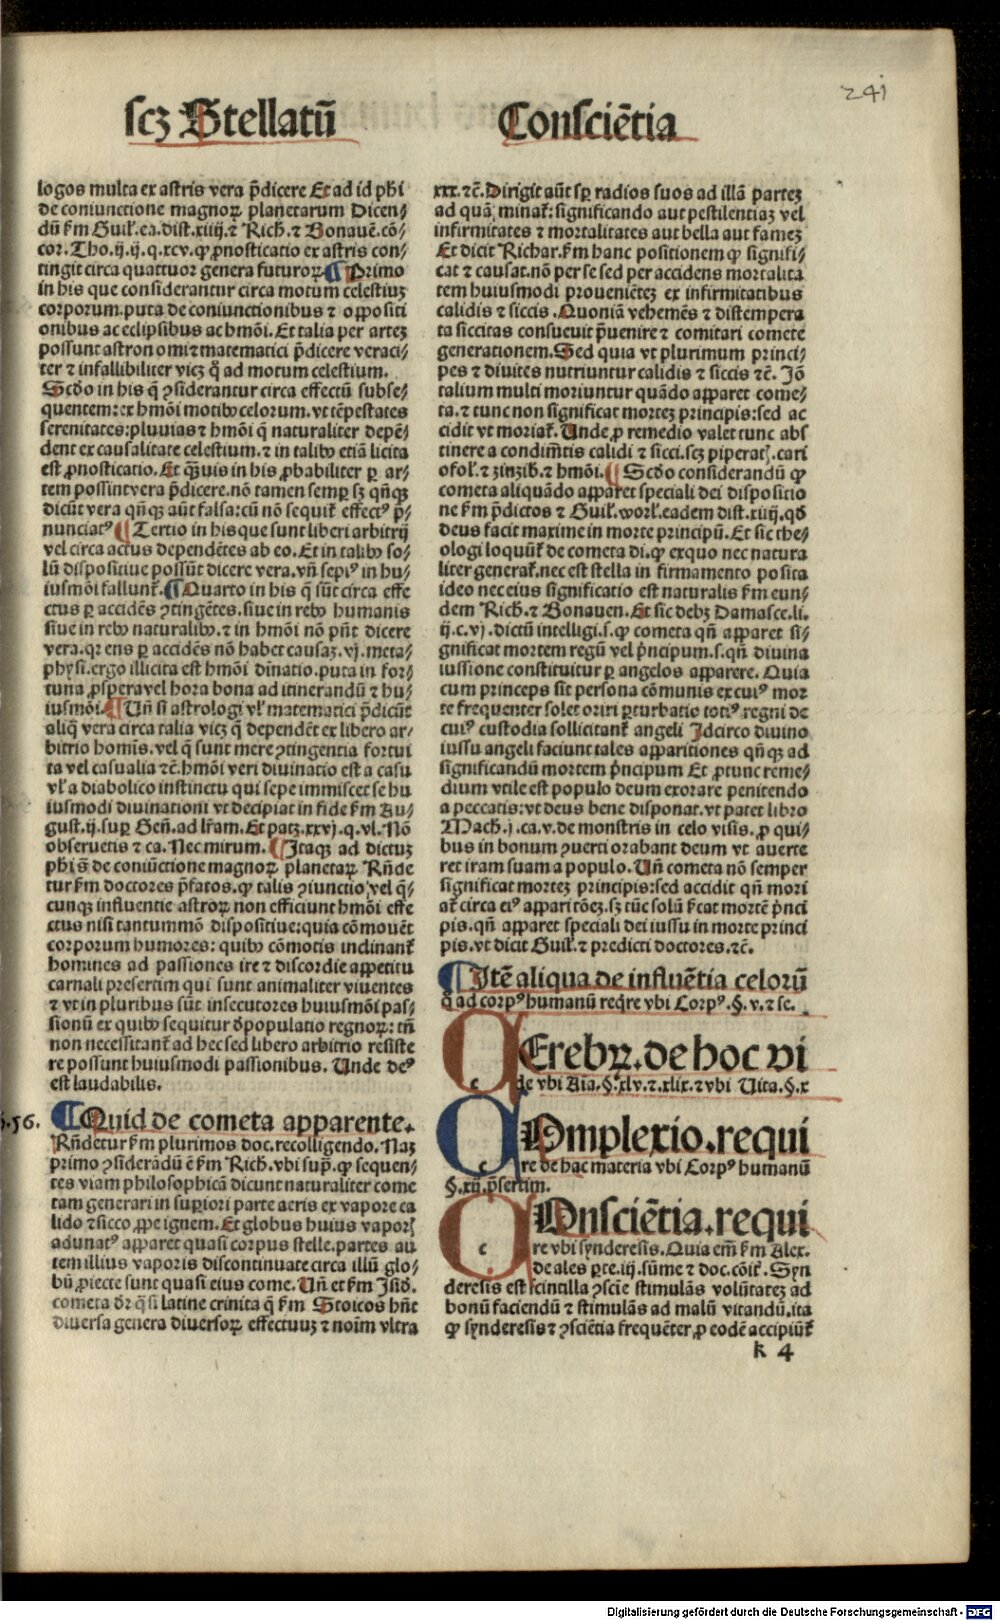 241
scʒ Stellatū
Consciētia
logos multa ex astris vera p̄dicere Et ad id ph̄i
de coniunctione magnoꝝ planetarum Dicen⸗
dū ẜm Guil̓. ea. dist. xiiij. ⁊ Rich. ⁊ Bonauē. cō⸗
cor. Tho. ij. ij. q. xcv. ꝙ ꝓnosticatio ex astris con⸗
tingit circa quattuor genera futuroꝝ ¶ Primo
in his que considerantur circa motum celestiuʒ
corporum. puta de coniunctionibus ⁊ oppositi
onibus ac eclipsibus ac hmōi. Et talia per arteʒ
possunt astronomi ⁊ matematici p̄dicere veraci⸗
ter ⁊ infallibiliter vicʒ q̄ ad motum celestium.
Scd̓o in his q̄ ꝯsiderantur circa effectū subse⸗
quentem: ex hmōi motibꝰ celorum. vt tēpestates
serenitates: pluuias ⁊ hmōi q̄ naturaliter depē⸗
dent ex causalitate celestium. ⁊ in talibꝰ etiā licita
est ꝓnosticatio. Et q̄uis in his ꝓbabiliter ꝑ ar⸗
tem possint vera p̄dicere. nō tamen semꝑ sʒ qn̄qʒ
dicūt vera qn̄qʒ aūt falsa: cū nō sequit̉ effectꝰ p̄⸗
nunciatꝰ ¶ Tertio in his que sunt liberi arbitrij
vel circa actus dependētes ab eo. Et in talibꝰ so⸗
lū dispositiue possūt dicere vera. vn̄ sepiꝰ in hu⸗
iusmōi fallunt̉. ¶ Quarto in his q̄ sūt circa effe
ctus ꝑ accidēs ꝯtingētes. siue in rebꝰ humanis
siue in rebꝰ naturalibꝰ. ⁊ in hmōi nō pn̄t dicere
vera. qꝛ ens ꝑ accidēs nō habet causaʒ. vj. meta⸗
physi. ergo illicita est hmōi diuinatio. puta in for⸗
tuna ꝓspera vel hora bona ad itinerandū ⁊ hu⸗
iusmōi. ¶ Un̄ si astrologi vl̓ matematici p̄dicūt
aliq̄ vera circa talia vicʒ q̄ dependēt ex libero ar⸗
bitrio homīs. vel q̄ sunt mere ꝯtingentia fortui
ta vel casualia ⁊c̄. hmōi veri diuinatio est a casu
vl̓ a diabolico instinctu qui sepe immiscet se hu
iusmodi diuinationi vt decipiat in fide ẜm Au⸗
gust. ij. suꝑ Gen̄. ad lr̄am. Et patʒ. xxvj. q. vl. Nō
obseruetis ⁊ ca. Nec mirum. ¶ Itaqʒ ad dictuʒ
ph̄i s̄ de coniūctione magnoꝝ planetaꝝ Rn̄de
tur ẜm doctores p̄fatos. ꝙ talis ꝯiunctio vel q̄⸗
cunqʒ influentie astroꝝ non efficiunt hmōi effe
ctus nisi tantummō dispositiue: quia cōmouēt
corporum humores: quibꝰ cōmotis inclinant̉
homines ad passiones ire ⁊ discordie appetitu
carnali presertim qui sunt animaliter viuentes
⁊ vt in pluribus sūt insecutores huiusmōi pas⸗
sionū ex quibꝰ sequitur d̓populatio regnoꝝ: tn̄
non necessitant̉ ad hec sed libero arbitrio resiste
re possunt huiusmodi passionibus. Unde deꝰ
est laudabilis.
§.56. ¶ Quid de cometa apparente.
Rn̄detur ẜm plurimos doc. recolligendo. Naʒ
primo ꝯsiderādū ē ẜm Rich. vbi supͣ. ꝙ sequen⸗
tes viam philosophicā dicunt naturaliter come
tam generari in suꝑiori parte aeris ex vapore ca
lido ⁊ sicco ꝓpe ignem. Et globus huius vaporꝭ
adunatꝰ apparet quasi corpus stelle. partes au
tem illius vaporis discontinuate circa illū glo⸗
bū ꝓiecte sunt quasi eius come. Un̄ et ẜm Isid̓.
cometa dr̄ q̄si latine crinita q̄ ẜm Stoicos hn̄t
diuersa genera diuersoꝝ effectuuʒ ⁊ noīm vltra
xxx. ⁊c̄. Dirigit aūt sꝑ radios suos ad illā parteʒ
ad quā minat̉: significando aut pestilentiaʒ vel
infirmitates ⁊ mortalitates aut bella aut fameʒ
Et dicit Richar. ẜm hanc positionem ꝙ signifi⸗
cat ⁊ causat. nō per se sed per accidens mortalita
tem huiusmodi prouenietēʒ ex infirmitatibus
calidis ⁊ siccis. Quoniā vehemēs ⁊ distempera
ta siccitas consueuit p̄uenire ⁊ comitari comete
generationem. Sed quia vt plurimum princi⸗
pes ⁊ diuites nutriuntur calidis ⁊ siccis ⁊c̄. Iō
talium multi moriuntur quādo apparet come⸗
ta. ⁊ tunc non significat morteʒ principis: sed ac
cidit vt moriat̉. Unde ꝓ remedio valet tunc abs
tinere a condimētis calidi ⁊ sicci. scʒ piperatꝭ. cari
ofol̓. ⁊ zinzib̓. ⁊ hmōi. ¶ Scd̓o considerandū ꝙ
cometa aliquādo apparet speciali dei dispositio
ne ẜm p̄dictos ⁊ Guil̓. worl̓. eadem dist. xiiij. qd̓
deus facit maxime in morte principū. Et sic the⸗
ologi loquūt̉ de cometa di. ꝙ exquo nec natura
liter generat̉. nec est stella in firmamento posita
ideo nec eius significatio est naturalis ẜm eun⸗
dem Rich. ⁊ Bonauen. Et sic debʒ Damasce. li.
ij. c. vj. dictū intelligi. s. ꝙ cometa qn̄ apparet si⸗
gnificat mortem regū vel p̄ncipum. s. qn̄ diuina
iussione constituitur ꝑ angelos apparere. Quia
cum princeps sit persona cōmunis ex cuiꝰ mor
te frequenter solet oriri ꝑturbatio totiꝰ regni de
cuiꝰ custodia sollicitant̉ angeli Idcirco diuino
iussu angeli faciunt tales apparitiones qn̄qʒ ad
significandū mortem p̄ncipum Et ꝓ tunc reme⸗
dium vtile est populo deum exorare penitendo
a peccatis: vt deus bene disponat. vt patet libro
Mach. j. ca. v. de monstris in celo visis. ꝓ qui⸗
bus in bonum ꝯuerti orabant deum vt auerte
ret iram suam a populo. Un̄ cometa nō semper
significat morteʒ principis: sed accidit qn̄ mori
at̉ circa eiꝰ apparitōeʒ. sʒ tūc solū ẜcat mortē p̄nci
pis. qn̄ apparet speciali dei iussu in morte princi
pis. vt dicit Guil̓. ⁊ predicti doctores. ⁊c̄.
¶ Itē aliqua de influētia celorū
q̄ ad corpꝰ humanū reqͥre vbi Corpꝰ. §. v. ⁊ se.
CErebꝝ. de hoc vi
de vbi Aīa. §. xlv. ⁊ xlix. ⁊ vbi Uita. §. x
COmplexio. requi
re de hac materia vbi Corpꝰ humanū
§. xij. p̄sertim.
COnsciētia. requi
re vbi synderesis. Quia em̄ ẜm Alex.
de ales ꝑte. iij. sūme ⁊ doc. cōit̓. Syn
deresis est scintilla ꝯscīe stimulās volūtateʒ ad
bonū faciendū ⁊ stimulās ad malū vitandū. ita
ꝙ synderesis ⁊ ꝯsciētia frequēter ꝓ eodē accipiūt̉
k 4
Digitalisierung gefördert durch die Deutsche Forschungsgemeinschaft - DFG